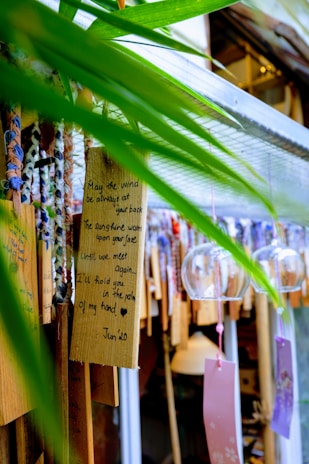 May the wind
be always at
your back
The sunshine warm
upon your face
Until we meet
again...
I'll hold you
in the palm
of my hand ♥
Jan '20